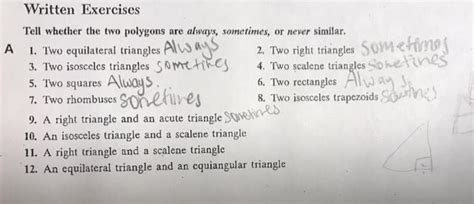 Written Exercises
Tell whether the two polygons are always, sometimes, or never similar.
A 1. Two equilateral triangles Always 2. Two right triangles Sometimes
3. Two isosceles triangles sometimes 4. Two scalene triangles Sometimes
5. Two squares Always. 6. Two rectangles Always
7. Two rhombuses Sometimes 8. Two isosceles trapezoids Sometimes
9. A right triangle and an acute triangle Sometimes
10. An isosceles triangle and a scalene triangle
11. A right triangle and a scalene triangle
12. An equilateral triangle and an equiangular triangle